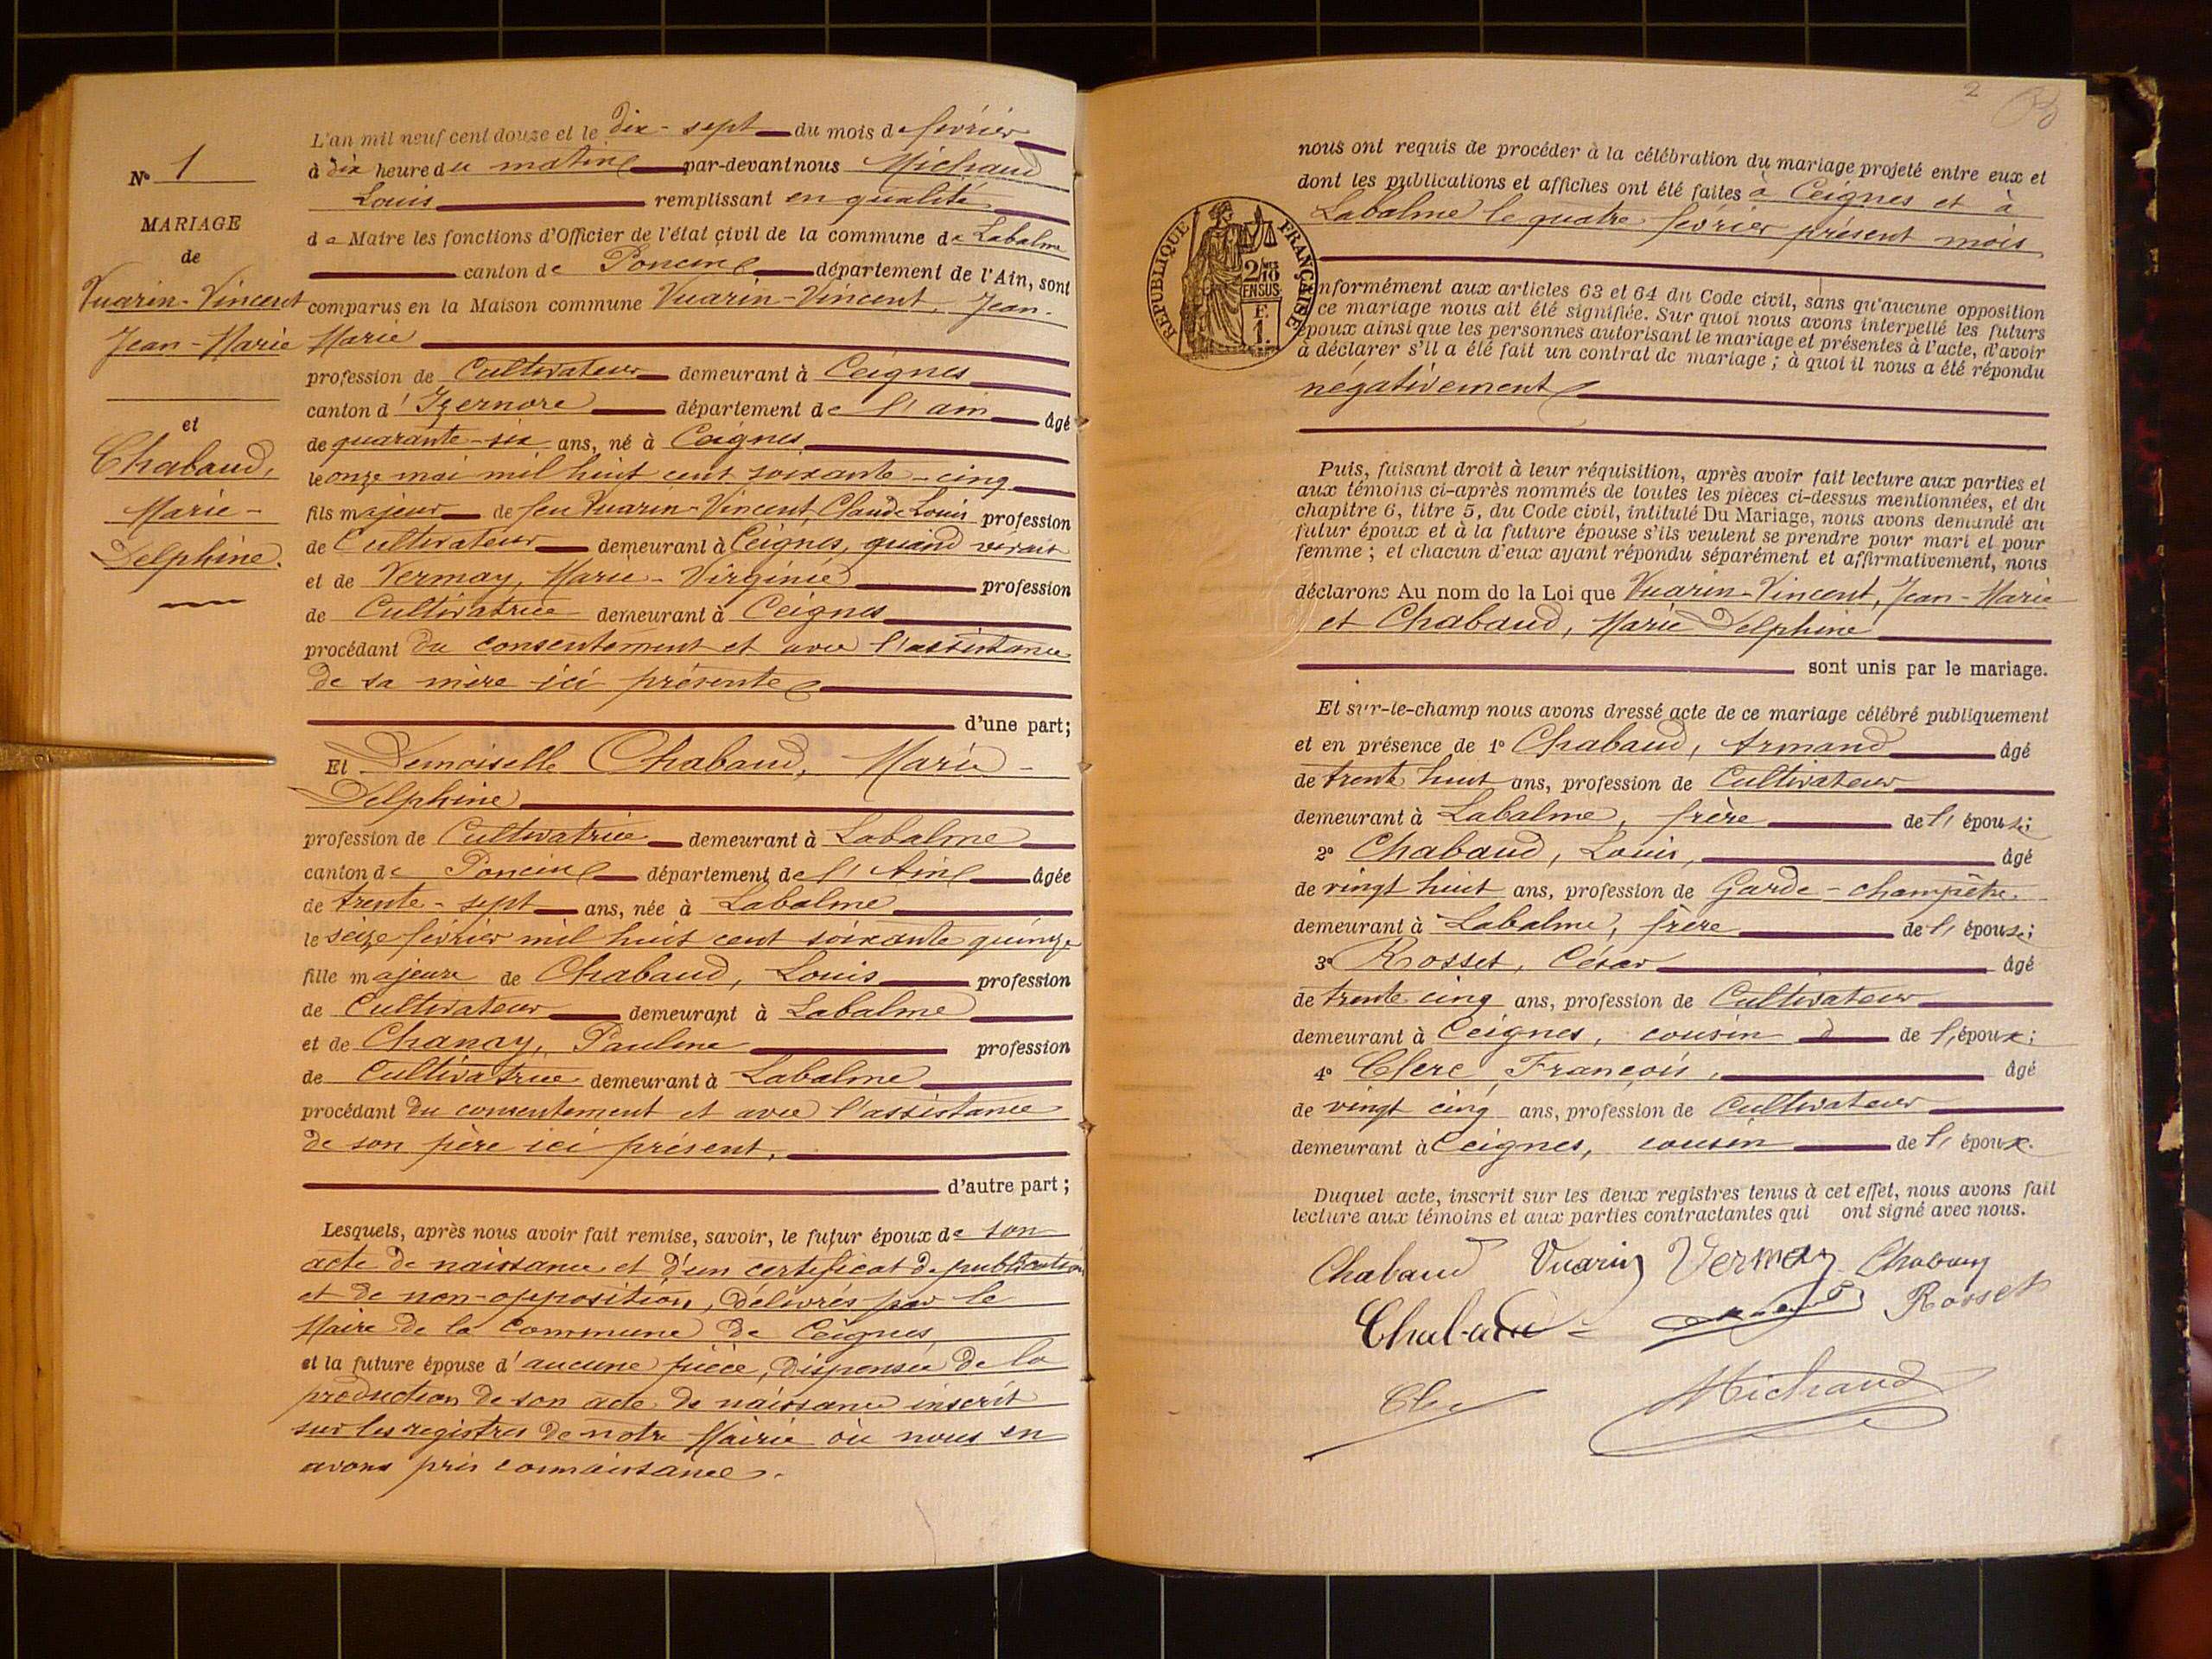 N° 1
MARIAGE
de
Vuarin-Vincent
Jean-Marie
et
Chabaud,
Marie-
Delphine.
L'an mil neuf cent douze et le dix-sept du mois de février
à dix heure du matin par-devant nous Michaud
Louis remplissant en qualité
de Maire les fonctions d'Officier de l'état civil de la commune de Labalme
canton de Poncin département de l'Ain, sont
comparus en la Maison commune Vuarin-Vincent, Jean-
Marie
profession de Cultivateur demeurant à Ceignes
canton d'Izernore département de l'ain âgé
de quarante-six ans, né à Ceignes,
le onze mai mil huit cent soixante-cinq
fils majeur de feu Vuarin-Vincent Claude Louis profession
de Cultivateur demeurant à Ceignes, quand vivait
et de Vermay, Marie-Virginie profession
de Cultivatrice demeurant à Ceignes
procédant du consentement et avec l'assistance
de sa mère ici présente
d'une part;
Et Demoiselle Chabaud, Marie-
Delphine
profession de Cultivatrice demeurant à Labalme
canton de Poncin département de l'Ain âgée
de trente-sept ans, née à Labalme
le seize février mil huit cent soixante quinze
fille majeure de Chabaud, Louis profession
de Cultivateur demeurant à Labalme
et de Chanay, Pauline profession
de Cultivatrice demeurant à Labalme
procédant du consentement et avec l'assistance
de son père ici présent,
d'autre part;
Lesquels, après nous avoir fait remise, savoir, le futur époux de son
acte de naissance et d'un certificat de publication
et de non-opposition, délivrés par le
Maire de la Commune de Ceignes
et la future épouse d'aucune pièce, dispensée de la
production de son acte de naissance inscrit
sur les registres de notre Mairie où nous en
avons pris connaissance.
2
nous ont requis de procéder à la célébration du mariage projeté entre eux et
dont les publications et affiches ont été faites à Ceignes et à
Labalme le quatre février présent mois
RÉPUBLIQUE FRANÇAISE
2/10 MES
EN SUS
F.
1.
nformément aux articles 63 et 64 du Code civil, sans qu'aucune opposition
ce mariage nous ait été signifiée. Sur quoi nous avons interpellé les futurs
époux ainsi que les personnes autorisant le mariage et présentes à l'acte, d'avoir
à déclarer s'il a été fait un contrat de mariage; à quoi il nous a été répondu
négativement
Puis, faisant droit à leur réquisition, après avoir fait lecture aux parties et
aux témoins ci-après nommés de toutes les pièces ci-dessus mentionnées, et du
chapitre 6, titre 5, du Code civil, intitulé Du Mariage, nous avons demandé au
futur époux et à la future épouse s'ils veulent se prendre pour mari et pour
femme; et chacun d'eux ayant répondu séparément et affirmativement, nous
déclarons Au nom de la Loi que Vuarin-Vincent, Jean-Marie
et Chabaud, Marie Delphine
sont unis par le mariage.
Et sur-le-champ nous avons dressé acte de ce mariage célébré publiquement
et en présence de 1° Chabaud, Armand âgé
de trente huit ans, profession de Cultivateur
demeurant à Labalme, frère de l'épouse;
2° Chabaud, Louis, âgé
de vingt huit ans, profession de Garde-champêtre
demeurant à Labalme, frère de l'épouse;
3° Rosset, César âgé
de trente cinq ans, profession de Cultivateur
demeurant à Ceignes, cousin de l'époux;
4° Clerc, François, âgé
de vingt cinq ans, profession de Cultivateur
demeurant à Ceignes, cousin de l'époux.
Duquel acte, inscrit sur les deux registres tenus à cet effet, nous avons fait
lecture aux témoins et aux parties contractantes qui ont signé avec nous.
Chabaud Vuarin Vermay Chabaud
Chabaud Rosset
Michaud